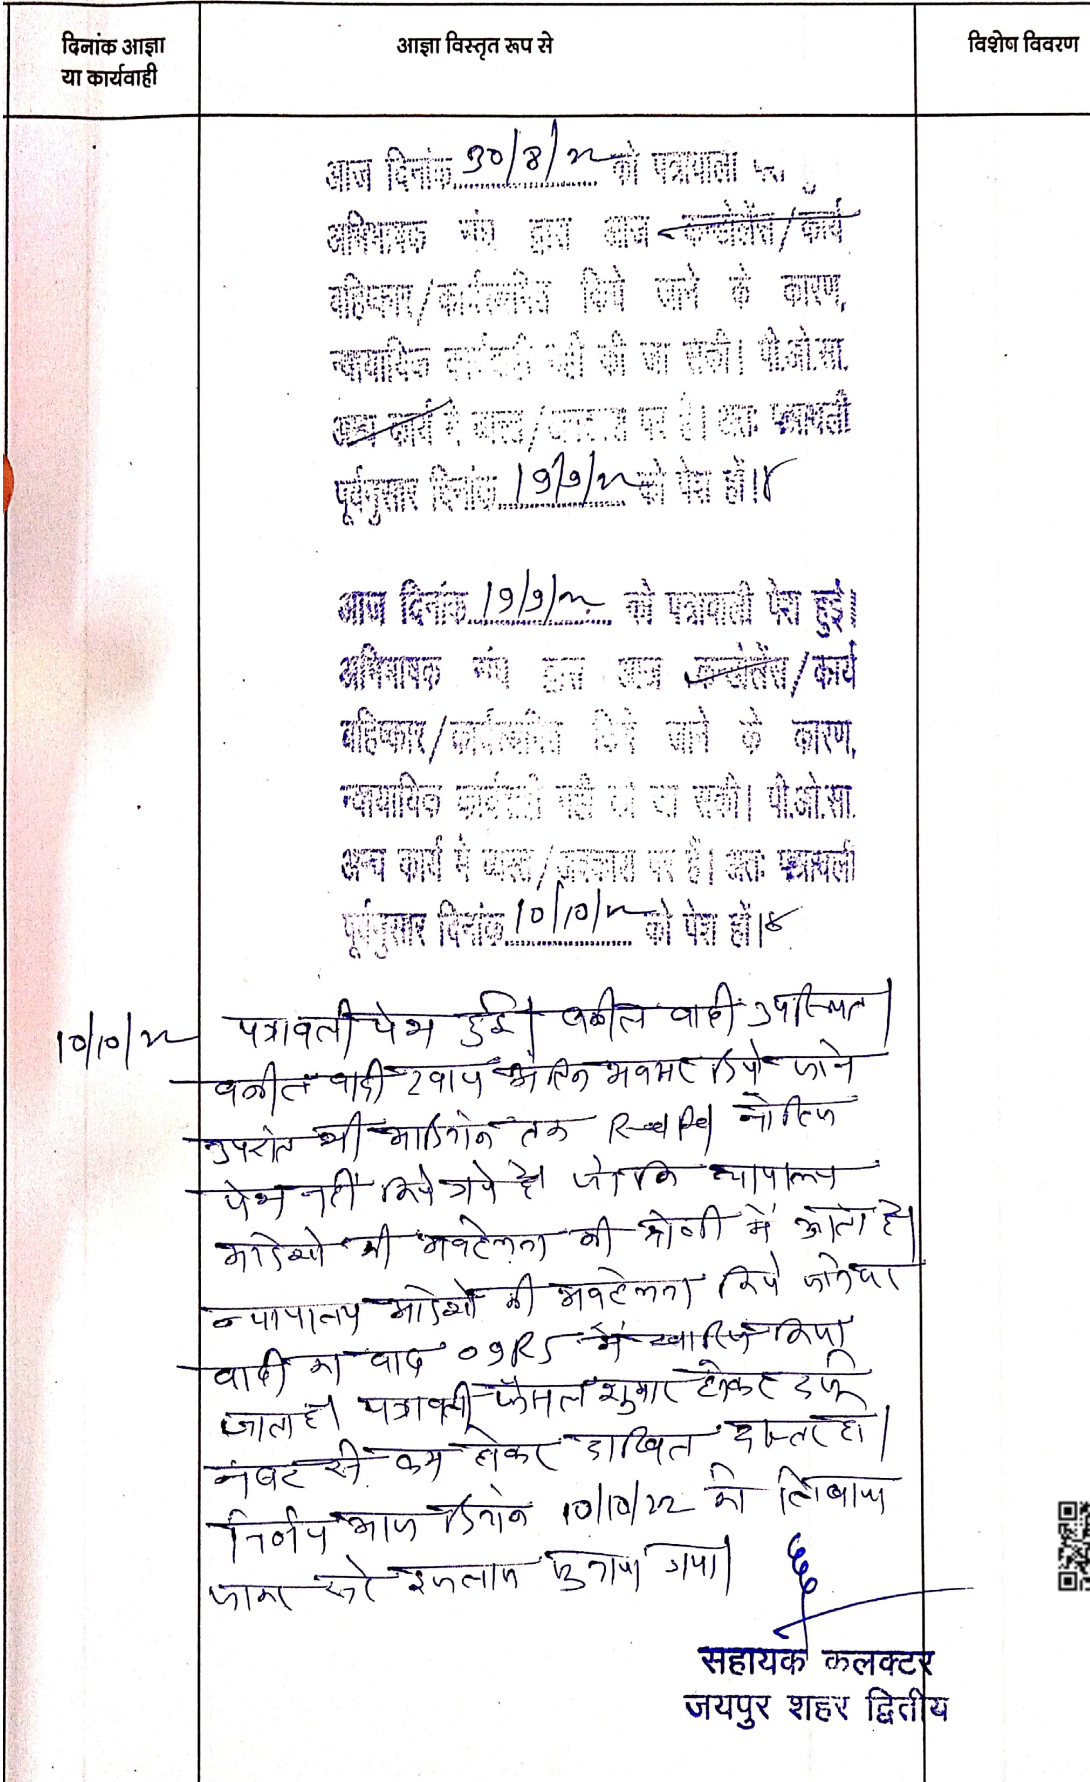 दिनांक आज्ञा
या कार्यवाही
आज्ञा विस्तृत रूप से
विशेष विवरण
आज दिनांक 30/8/22 को पत्रावली
अभिभाषक संघ द्वारा आज कन्डोलेंस/कार्य
बहिष्कार/कार्यस्थगित किये जाने के कारण,
न्यायायिक कार्यवाही नही की जा सकी। पी.ओ.सा.
अन्य कार्य मे व्यस्त/अवकाश पर है। अतः पत्रावली
पूर्वनुसार दिनांक 19/9/22 को पेश हों।
आज दिनांक 19/9/22 को पत्रावाली पेश हुई।
अभिभाषक संघ द्वारा आज कन्डोलेंस/कार्य
बहिष्कार/कार्यस्थगित किये जाने के कारण,
न्यायायिक कार्यवाही नही की जा सकी। पी.ओ.सा.
अन्य कार्य मे व्यस्त/अवकाश पर है। अतः पत्रावली
पूर्वनुसार दिनांक 10/10/22 को पेश हों।
10/10/22 पत्रावली पेश हुई। वकील वादी उपस्थित।
वकील वादी द्वारा अंतिम अवसर दिये जाने
उपरांत भी आदिनांक तक नोटिस
पेश नहीं किये गये है। जो कि न्यायालय
आदेशो की अवहेलना की श्रेणी में आता है।
न्यायालय आदेशों की अवहेलना किये जाने पर
वादी का वाद 09R5 में खारिज किया
जाता है। पत्रावली फैसल शुमार होकर दर्ज
नंबर से कम होकर दाखिल दफ्तर हो।
निर्णय आज दिनांक 10/10/22 को लिखाया
जाकर सरे इजलास सुनाया गया।
सहायक कलक्टर
जयपुर शहर द्वितीय